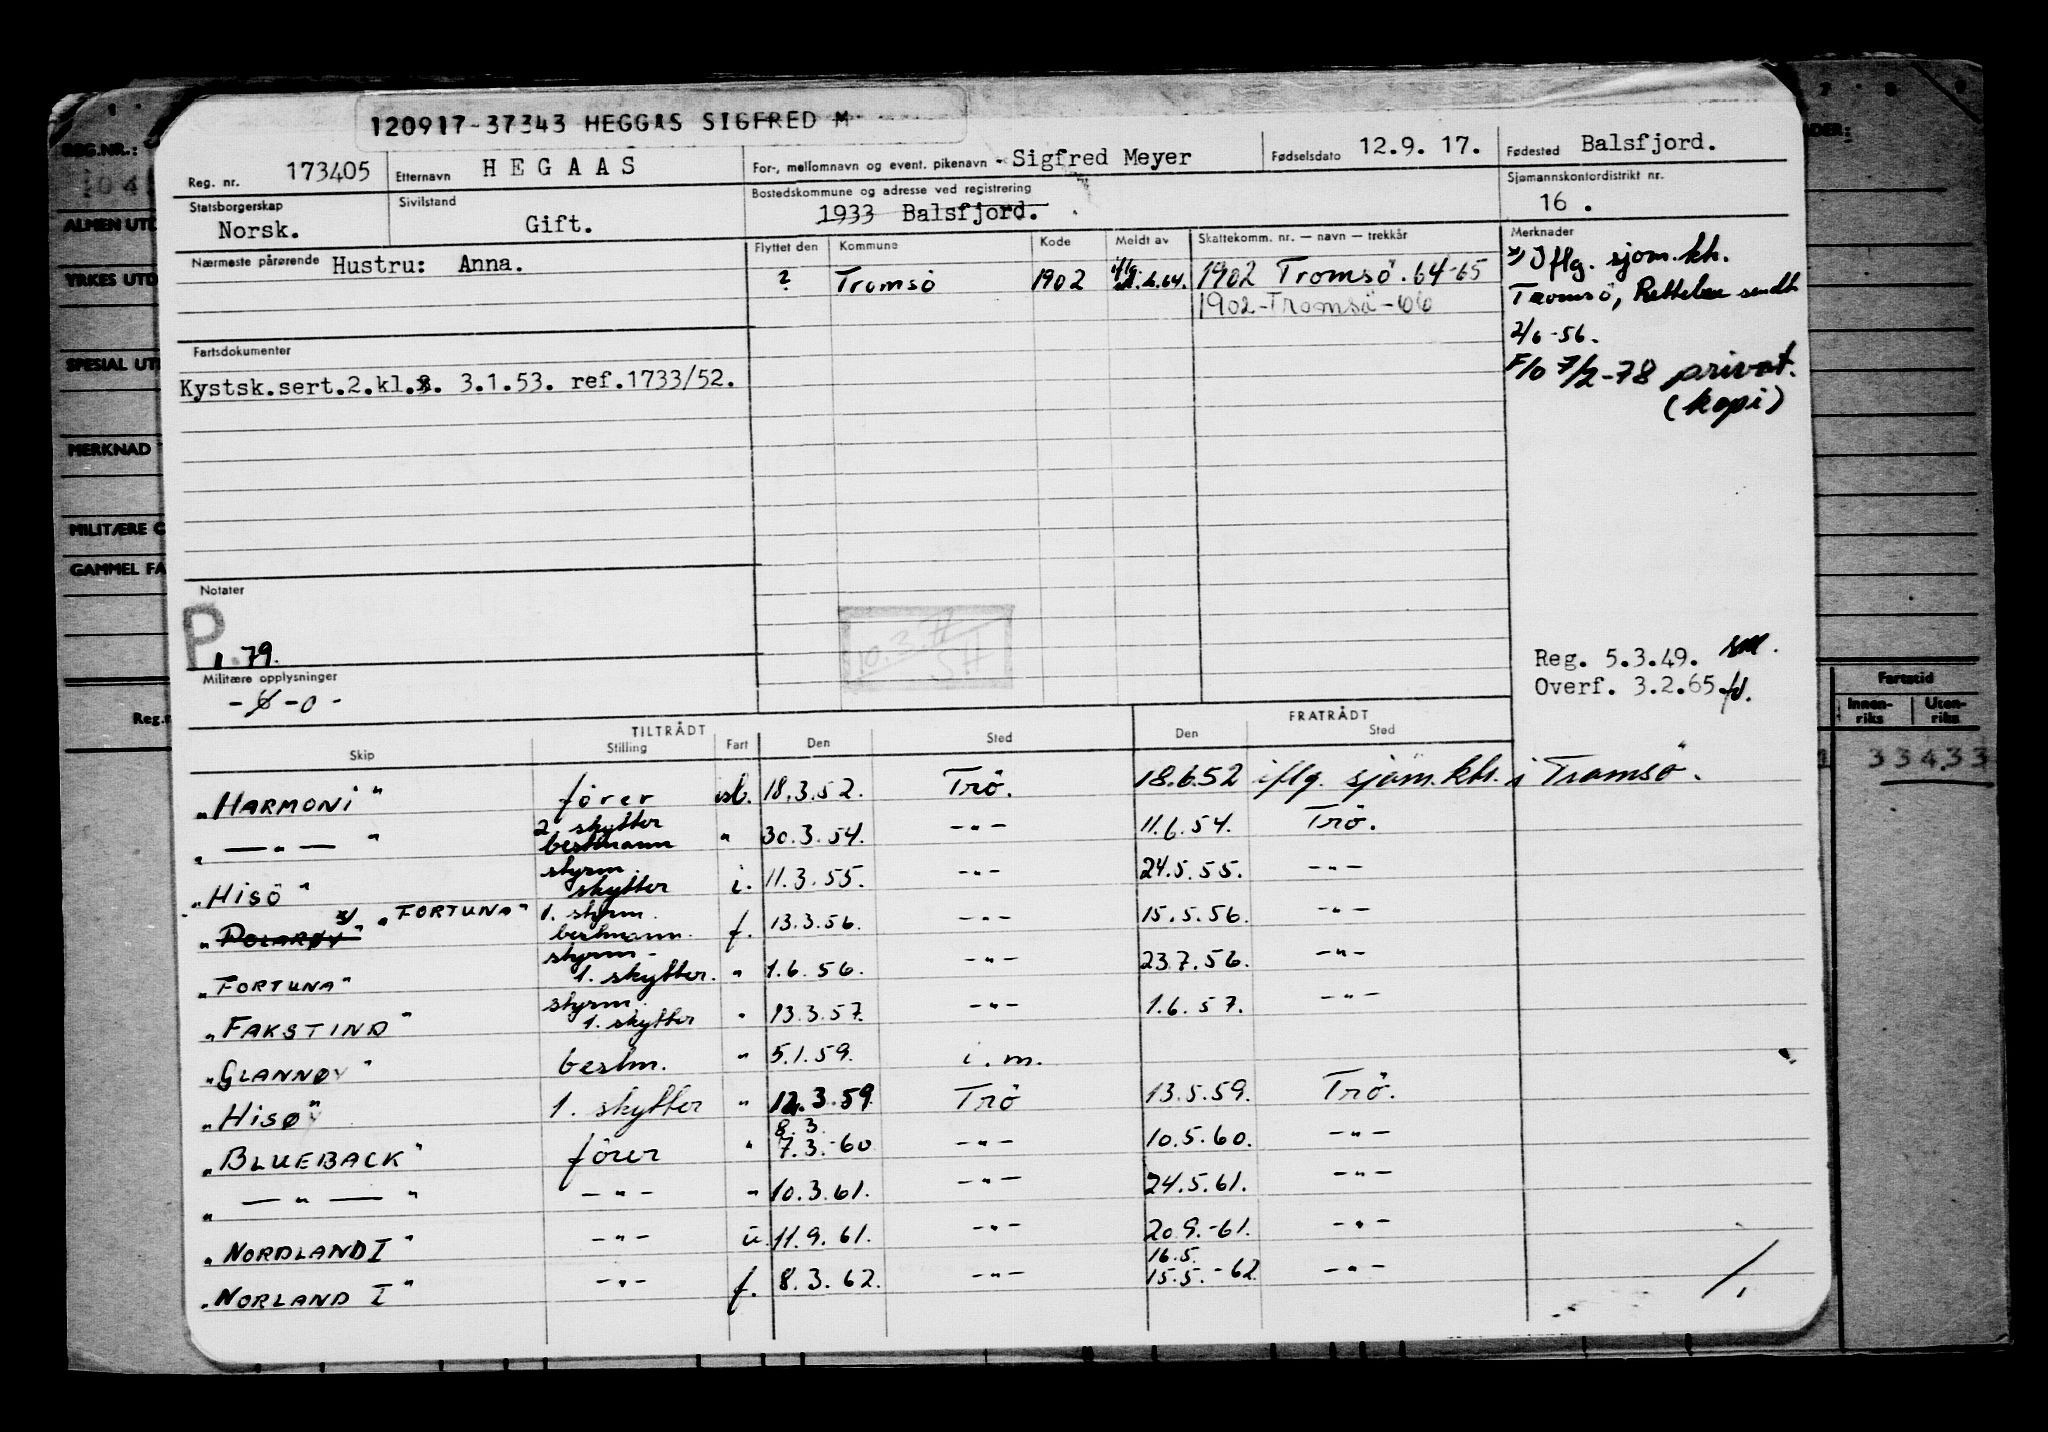 120917-37343 HEGGAS SIGFRED M
Reg. nr. 173405 Etternavn HEGAAS For-, mellomnavn og event. pikenavn Sigfred Meyer Fødselsdato 12.9. 17. Fødested Balsfjord.
Statsborgerskap Norsk. Sivilstand Gift. Bostedskommune og adresse ved registrering 1933 Balsfjord. Sjømannskontordistrikt nr. 16 .
Nærmeste pårørende Hustru: Anna. Flyttet den Kommune Kode Meldt av Skattekomm. nr. — navn — trekkår Merknader
? Tromsö 1902 1902 Tromsö. 64-65
1902-Tromsö-66
x) Iflg. sjøm.kh.
Tromsö, Rettelse sendt
2/6-56.
F/o 7/2-78 privat.
(kopi)
Fartsdokumenter
Kystsk.sert.2.kl. 3.1.53. ref.1733/52.
Notater
P
1.79.
Militære opplysninger
-0-
Reg. 5.3.49.
Overf. 3.2.65
TILTRÅDT FRATRÅDT
Skip Stilling Fart Den Sted Den Sted
"HARMONI" förer 18.3.52. Trö. 18.6.52 iflg. sjøm.kh. i Tromsö.
" — " — " 2. skytter bestmann " 30.3.54. — " — 11.6.54. Trö.
"HISÖ" styrm. skytter i. 11.3.55. — " — 24.5.55. — " —
"POLARØY" x) "FORTUNA" 1. styrm. bestmann. f. 13.3.56. — " — 15.5.56. — " —
"FORTUNA" styrm- 1. skytter. " 1.6.56. — " — 23.7.56. — " —
"FAKSTIND" styrm. 1. skytter " 13.3.57. — " — 1.6.57. — " —
"GLANNØY" bestm. " 5.1.59. i.m.
"HISØY" 1. skytter " 12.3.59. Trö 13.5.59. Trö.
"BLUEBACK" förer " 8.3. 7.3.-60 — " — 10.5.60. — " —
" — " — " — " — " 10.3.61. — " — 24.5.61. — " —
"NORDLAND I" — " — u. 11.9.61. — " — 20.9.-61. — " —
"NORLAND I" — " — f. 8.3.62. — " — 16.5. 15.5.-62. — " —
REG.NR.:
ALMEN UTD
YRKES UTD
SPESIAL UT
MERKNAD
MILITÆRE O
GAMMEL FA
Reg.n
Fartstid
Innen-riks Uten-riks
33433